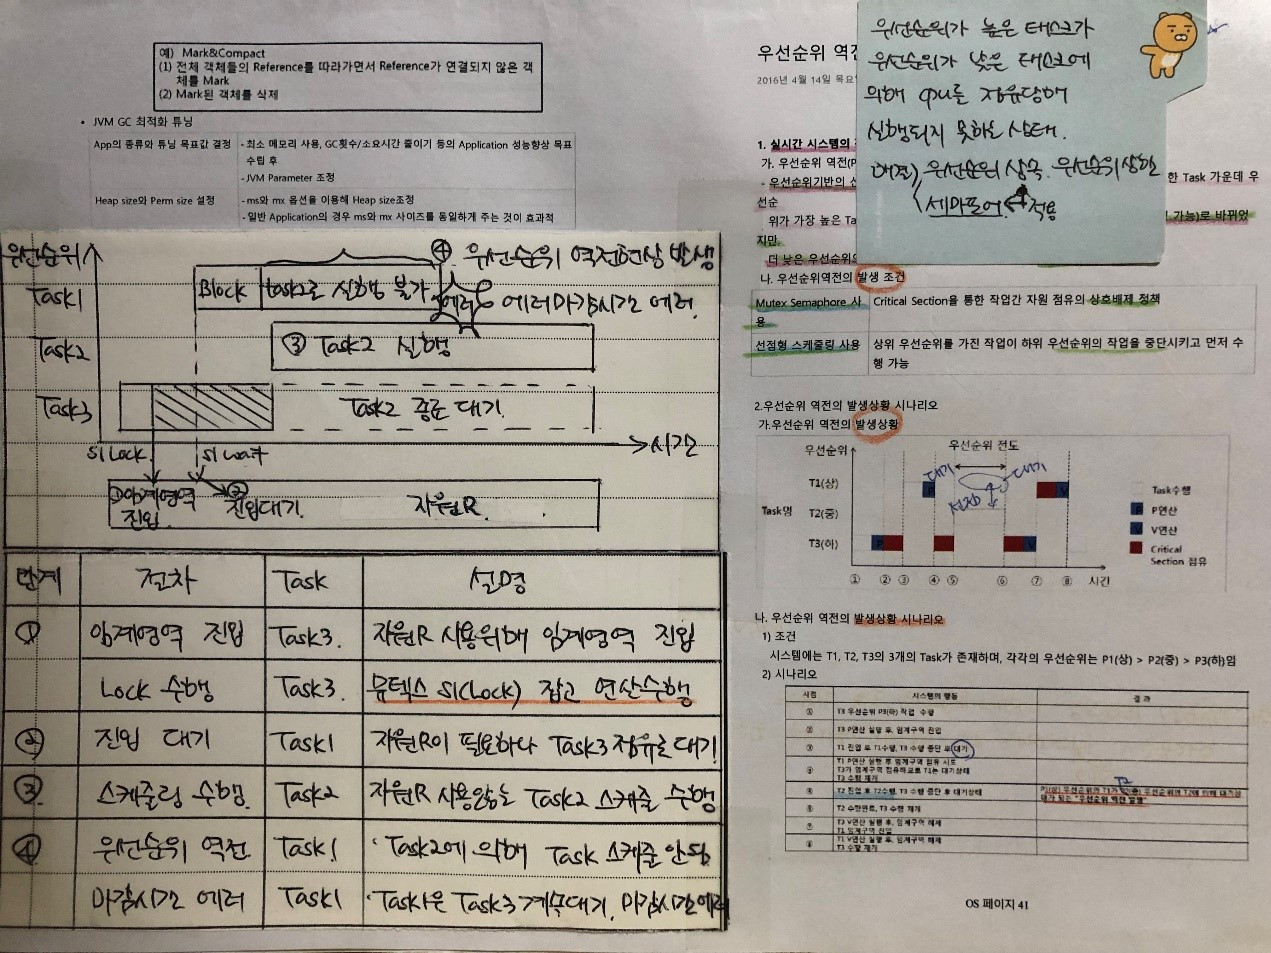 예) Mark&Compact
(1) 전체 객체들의 Reference를 따라가면서 Reference가 연결되지 않은 객
체를 Mark
(2) Mark된 객체를 삭제
• JVM GC 최적화 튜닝
App의 종류와 튜닝 목표값 결정
- 최소 메모리 사용, GC횟수/소요시간 줄이기 등의 Application 성능향상 목표
수립 후
- JVM Parameter 조정
Heap size와 Perm size 설정
- ms와 mx 옵션을 이용해 Heap size조정
- 일반 Application의 경우 ms와 mx 사이즈를 동일하게 주는 것이 효과적
우선순위
④ 우선순위 역전현상 발생
Task1
Block
task2로 실행 불가
에러
에러마감시간 에러.
Task2
③ Task2 실행
Task3
Task2 종료 대기.
시간
S1 Lock
S1 wait
①임계영역
진입.
②
진입대기.
자원R.
단계 절차 Task 설명
① 임계영역 진입 Task3. 자원R 사용위해 임계영역 진입
Lock 수행 Task3. 뮤텍스 S1(Lock) 잡고 연산수행
② 진입 대기 Task1 자원R이 필요하나 Task3 점유로 대기
③ 스케줄링 수행. Task2 자원R 사용않는 Task2 스케줄 수행
④ 우선순위 역전. Task1 · Task2에 의해 Task 스케줄 안됨
마감시간 에러 Task1 · Task1은 Task3 계속대기, 마감시간에러
우선순위가 높은 태스크가
우선순위가 낮은 태스크에
의해 CPU를 점유당해
실행되지 못하는 상태.
해결) 우선순위 상속. 우선순위상한
세마포어 적용
우선순위 역전
2016년 4월 14일 목요일
1. 실시간 시스템의
가. 우선순위 역전(P
- 우선순위기반의 한 Task 가운데 우
선순
위가 가장 높은 Ta 가능)로 바뀌었
지만,
더 낮은 우선순위의
나. 우선순위역전의 발생 조건
Mutex Semaphore 사
용
Critical Section을 통한 작업간 자원 점유의 상호배제 정책
선점형 스케줄링 사용
상위 우선순위를 가진 작업이 하위 우선순위의 작업을 중단시키고 먼저 수
행 가능
2.우선순위 역전의 발생상황 시나리오
가.우선순위 역전의 발생상황
우선순위
우선순위 전도
대기
대기
T1(상)
P
V
Task명
T2(중)
T3(하)
P
V
① ② ③ ④ ⑤ ⑥ ⑦ ⑧ 시간
Task수행
P연산
V연산
Critical
Section 점유
나. 우선순위 역전의 발생상황 시나리오
1) 조건
시스템에는 T1, T2, T3의 3개의 Task가 존재하며, 각각의 우선순위는 P1(상) > P2(중) > P3(하)임
2) 시나리오
시점 시스템의 행동 결 과
① T3 우선순위 P3(하) 작업 수행
② T3 P연산 실행 후, 임계구역 진입
③ T1 진입 후 T1수행, T3 수행 중단 후 대기
④ T1 P연산 실행 후 임계구역 점유 시도
T3가 임계구역 점유하므로 T1는 대기상태
T3 수행 재개
T2 진입 후 T2수행, T3 수행 중단 후 대기상태
T2
T2 수행완료, T3 수행 재개
⑦ T3 V연산 실행 후, 임계구역 해제
T1 임계구역 진입
T1 V연산 실행 후, 임계구역 해제
T3 수행 재개
OS 페이지 41